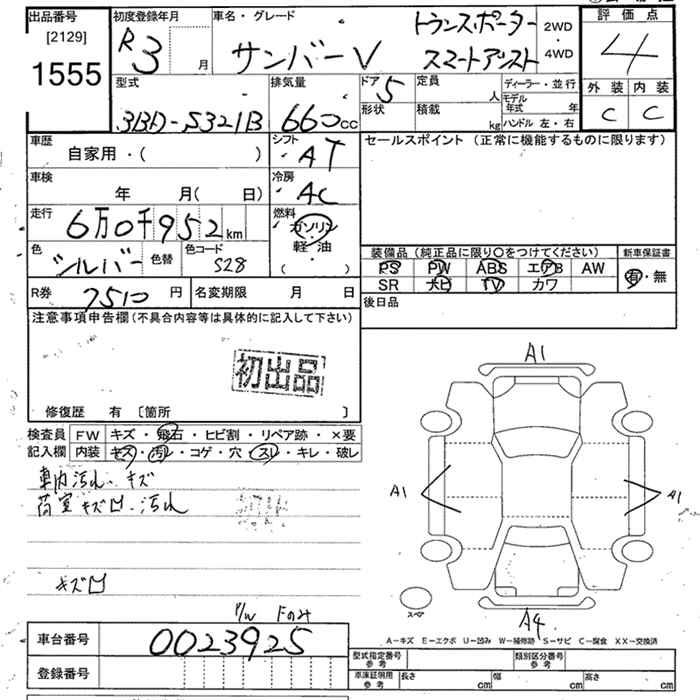 出品番号
[2129]
1555
初度登録年月
R3 月
車名・グレード
サンバーV
トランスポーター
スマートアシスト
2WD
・
4WD
評価点
4
外装 内装
C C
型式
3BD-S321B
排気量
660cc
ドア 5
形状
定員 人
積載 kg
ディーラー・並行
モデル年式 年
ハンドル 左・右
車歴
自家用・( )
シフト
AT
セールスポイント (正常に機能するものに限ります)
車検
年 月( 日)
冷房
AC
走行
6万0千952km
燃料
ガソリン
軽・油
( )
色
シルバー
色替
色コード
S28
装備品 (純正品に限り○をつけてください)
新車保証書
PS PW ABS エアB AW
有・無
SR ナビ TV カワ
R券 7510 円
名変期限 月 日
後日品
注意事項申告欄 (不具合内容等は具体的に記入して下さい)
初出品
修復歴 有 [箇所 ]
検査員
記入欄
FW キズ・飛石・ヒビ割・リペア跡・×要
内装 キズ・汚れ・コゲ・穴・スレ・キレ・破レ
車内汚れ、キズ
荷室キズ凹、汚れ
キズ凹
P/W Fのみ
A1
A1
A1
スペア
A4
A-キズ E-エクボ U-凹み W-補修跡 S-サビ C-腐食 XX-交換済
車台番号
0023925
登録番号
型式指定番号
参考
類別区分番号
参考
車庫証明用
参考
長さ cm
幅 cm
高さ cm